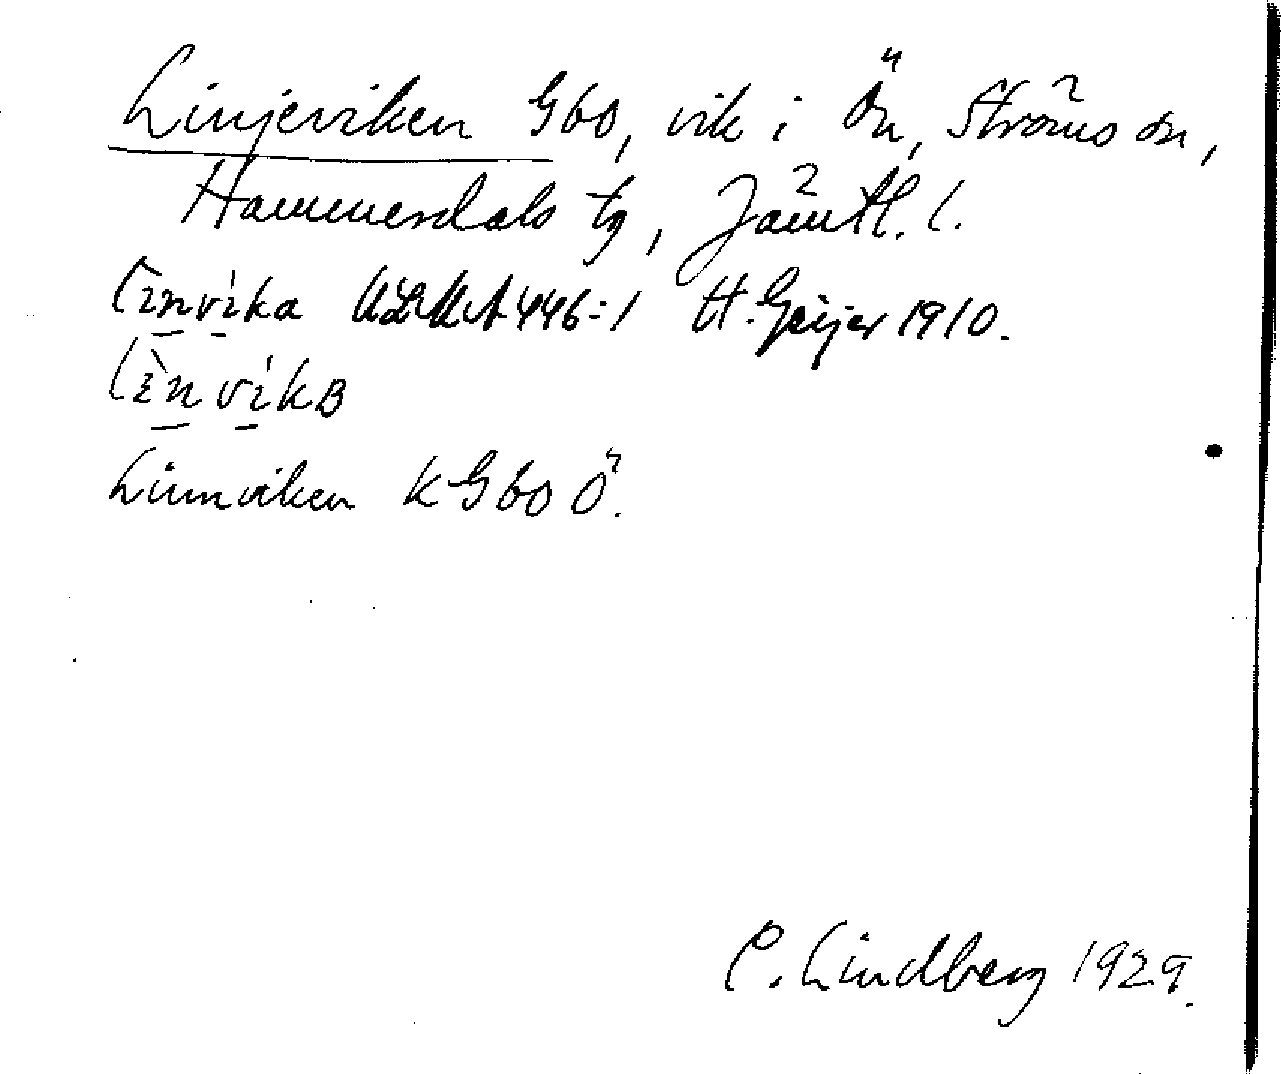 Linjeviken Gbo, vik i Ön, Ströms sn,
Hammerdals tg, Jämtl. l.
linvika ULMA 446:1 H. Geijer 1910.
lìnvikB
Linnviken KGboÖ.
C. Lindberg 1929.